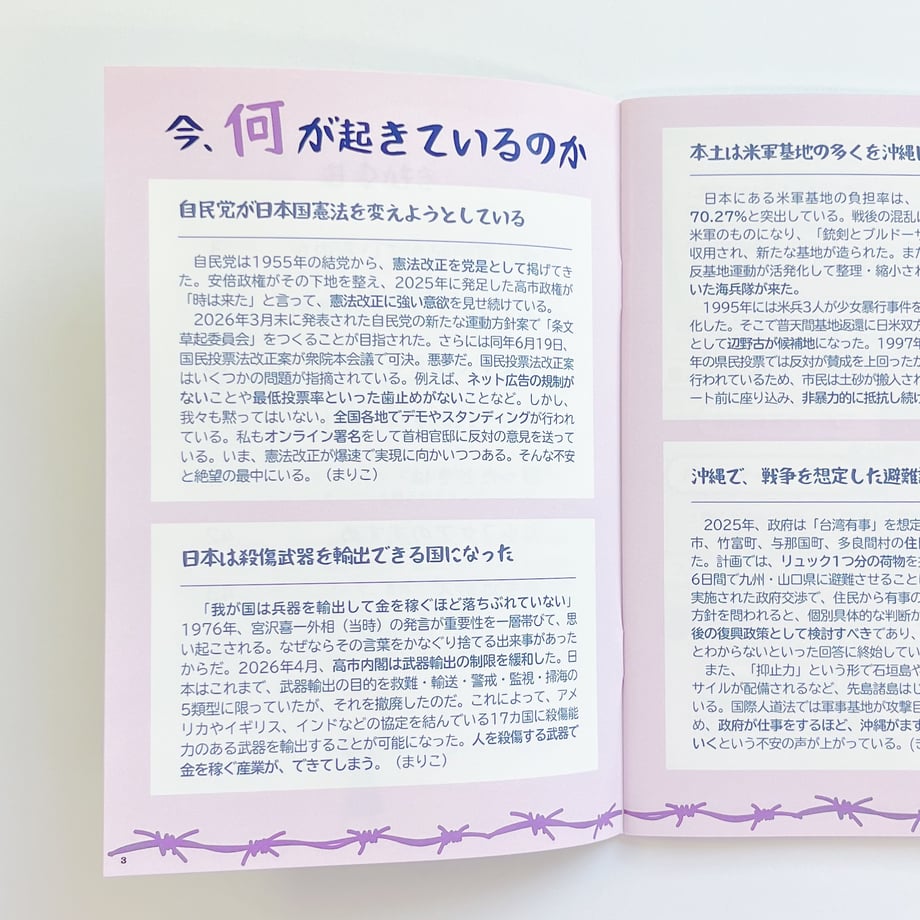 今、何が起きているのか
自民党が日本国憲法を変えようとしている
自民党は1955年の結党から、憲法改正を党是として掲げてき
た。安倍政権がその下地を整え、2025年に発足した高市政権が
「時は来た」と言って、憲法改正に強い意欲を見せ続けている。
2026年3月末に発表された自民党の新たな運動方針案で「条文
草起委員会」をつくることが目指された。さらには同年6月19日、
国民投票法改正案が衆院本会議で可決。悪夢だ。国民投票法改正案
はいくつかの問題が指摘されている。例えば、ネット広告の規制が
ないことや最低投票率といった歯止めがないことなど。しかし、
我々も黙ってはいない。全国各地でデモやスタンディングが行われ
ている。私もオンライン署名をして首相官邸に反対の意見を送って
いる。いま、憲法改正が爆速で実現に向かいつつある。そんな不安
と絶望の最中にいる。（まりこ）
日本は殺傷武器を輸出できる国になった
「我が国は兵器を輸出して金を稼ぐほど落ちぶれていない」
1976年、宮沢喜一外相（当時）の発言が重要性を一層帯びて、思
い起こされる。なぜならその言葉をかなぐり捨てる出来事があった
からだ。2026年4月、高市内閣は武器輸出の制限を緩和した。日
本はこれまで、武器輸出の目的を救難・輸送・警戒・監視・掃海の
5類型に限っていたが、それを撤廃したのだ。これによって、アメ
リカやイギリス、インドなどの協定を結んでいる17カ国に殺傷能
力のある武器を輸出することが可能になった。人を殺傷する武器で
金を稼ぐ産業が、できてしまう。（まりこ）
3
本土は米軍基地の多くを沖縄
日本にある米軍基地の負担率は、
70.27％と突出している。戦後の混乱
米軍のものになり、「銃剣とブルドーザ
収用され、新たな基地が造られた。また
反基地運動が活発化して整理・縮小さ
いた海兵隊が来た。
1995年には米兵3人が少女暴行事件を
化した。そこで普天間基地返還に日米双方
として辺野古が候補地になった。1997年
年の県民投票では反対が賛成を上回ったが
行われているため、市民は土砂が搬入され
ート前に座り込み、非暴力的に抵抗し続け
沖縄で、戦争を想定した避難
2025年、政府は「台湾有事」を想定
市、竹富町、与那国町、多良間村の住
た。計画では、リュック1つ分の荷物を
6日間で九州・山口県に避難させること
実施された政府交渉で、住民から有事の
方針を問われると、個別具体的な判断か
後の復興政策として検討すべきであり、
とわからないといった回答に終始してい
また、「抑止力」という形で石垣島や
サイルが配備されるなど、先島諸島は
いる。国際人道法では軍事基地が攻撃目
め、政府が仕事をするほど、沖縄がます
いくという不安の声が上がっている。（ま